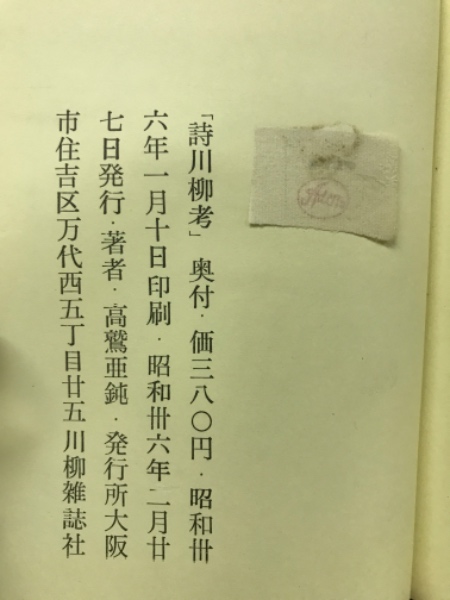 「詩川柳考」奥付・価三八〇円・昭和卅
六年一月十日印刷・昭和卅六年二月廿
七日発行・著者・高鷲亜鈍・発行所大阪
市住吉区万代西五丁目廿五川柳雑誌社